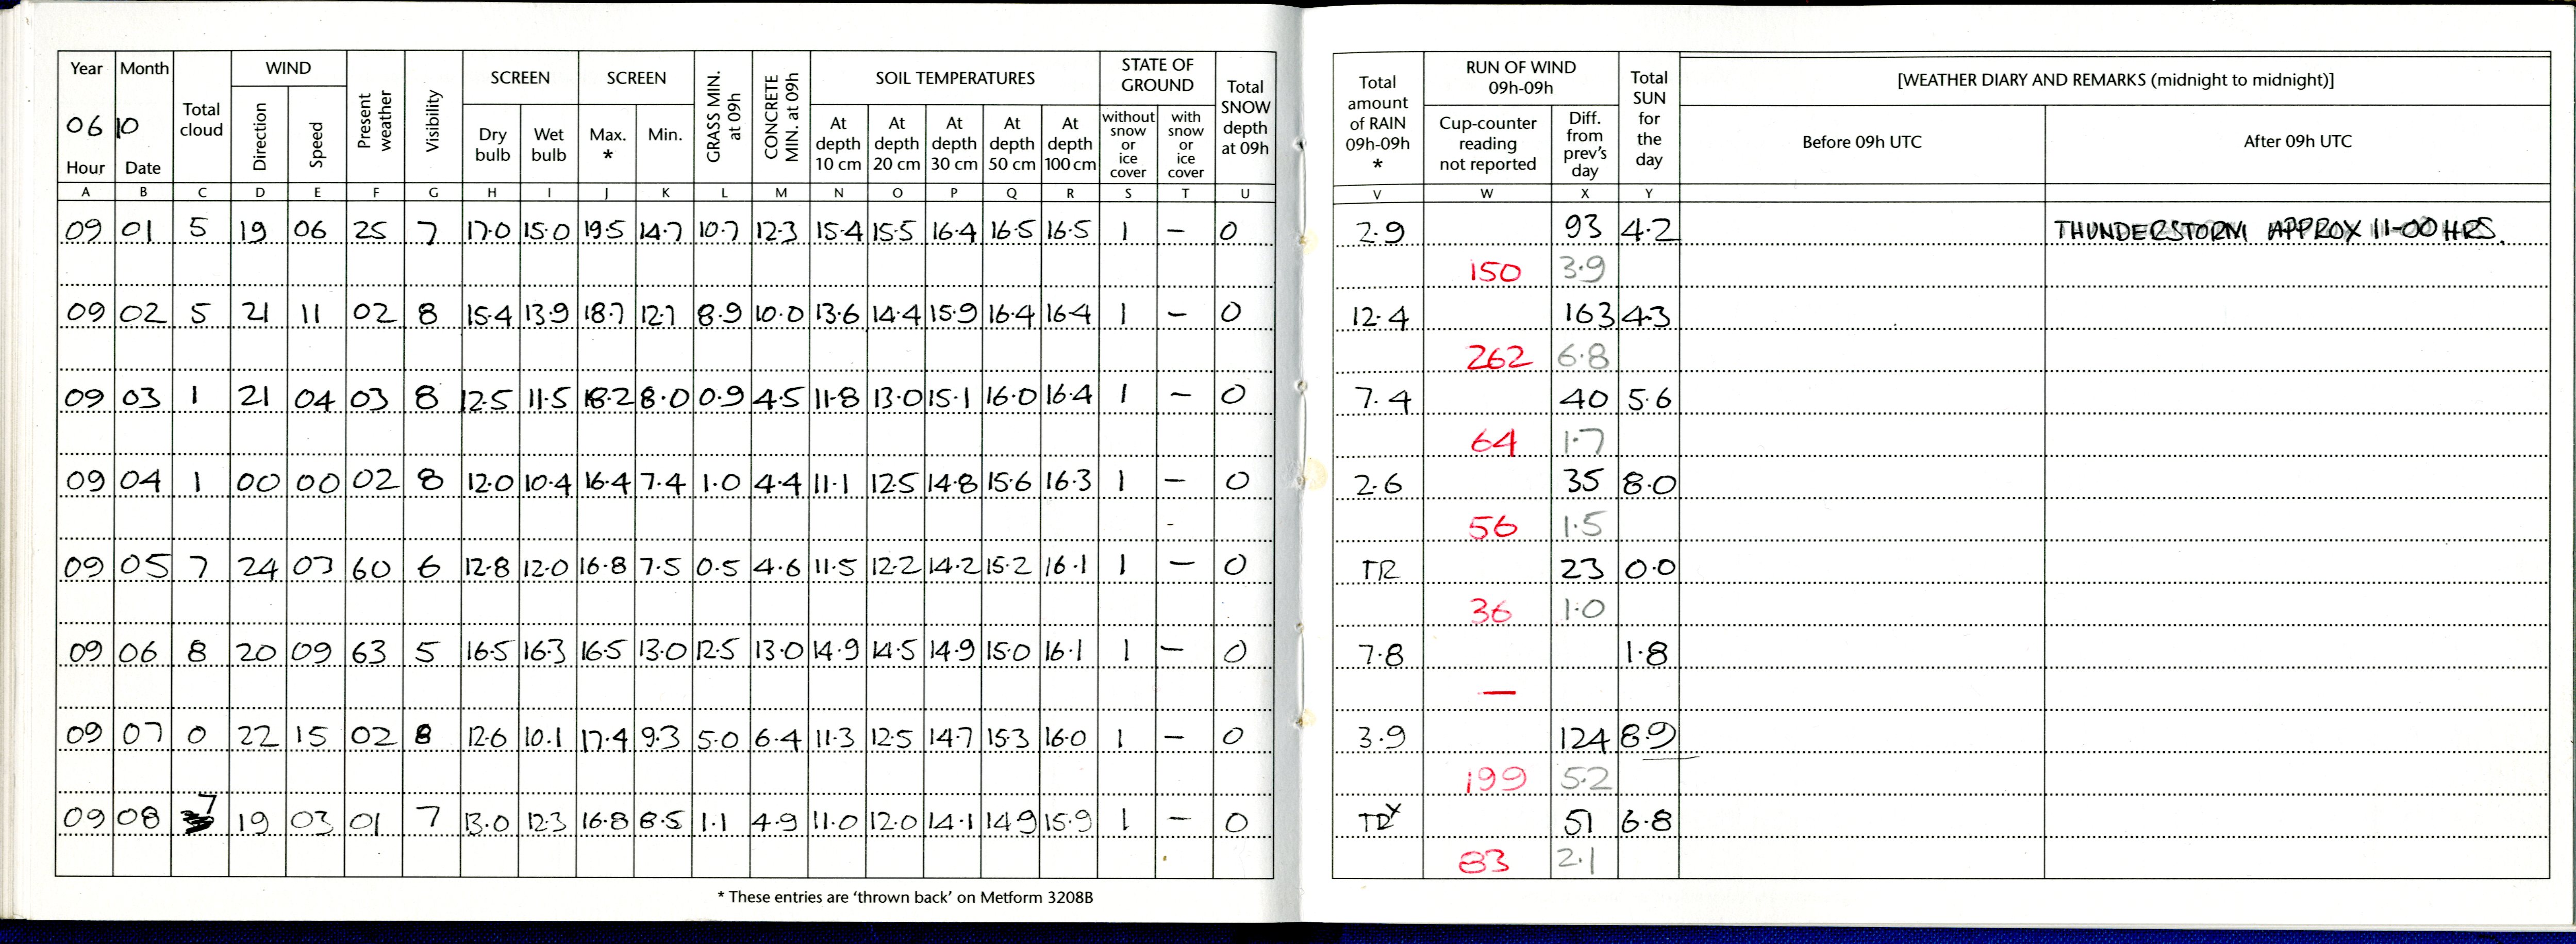 Year Month Total cloud WIND Present weather Visibility SCREEN SCREEN GRASS MIN. at 09h CONCRETE MIN. at 09h SOIL TEMPERATURES STATE OF GROUND Total SNOW depth at 09h Total amount of RAIN 09h-09h * RUN OF WIND 09h-09h Total SUN for the day [WEATHER DIARY AND REMARKS (midnight to midnight)]
06 10
Hour Date Direction Speed Dry bulb Wet bulb Max. * Min. At depth 10 cm At depth 20 cm At depth 30 cm At depth 50 cm At depth 100 cm without snow or ice cover with snow or ice cover Cup-counter reading not reported Diff. from prev's day Before 09h UTC After 09h UTC
A B C D E F G H I J K L M N O P Q R S T U V W X Y
09 01 5 19 06 25 7 17.0 15.0 19.5 14.7 10.7 12.3 15.4 15.5 16.4 16.5 16.5 1 – 0 2.9 93 4.2 THUNDERSTORM APPROX 11-00 HRS.
150 3.9
09 02 5 21 11 02 8 15.4 13.9 18.7 12.7 8.9 10.0 13.6 14.4 15.9 16.4 16.4 1 – 0 12.4 163 4.3
262 6.8
09 03 1 21 04 03 8 12.5 11.5 18.2 8.0 0.9 4.5 11.8 13.0 15.1 16.0 16.4 1 – 0 7.4 40 5.6
64 1.7
09 04 1 00 00 02 8 12.0 10.4 16.4 7.4 1.0 4.4 11.1 12.5 14.8 15.6 16.3 1 – 0 2.6 35 8.0
56 1.5
09 05 7 24 03 60 6 12.8 12.0 16.8 7.5 0.5 4.6 11.5 12.2 14.2 15.2 16.1 1 – 0 TR 23 0.0
36 1.0
09 06 8 20 09 63 5 16.5 16.3 16.5 13.0 12.5 13.0 14.9 14.5 14.9 15.0 16.1 1 – 0 7.8 1.8
–
09 07 0 22 15 02 8 12.6 10.1 17.4 9.3 5.0 6.4 11.3 12.5 14.7 15.3 16.0 1 – 0 3.9 124 8.9
199 5.2
09 08 7 19 03 01 7 13.0 12.3 16.8 8.5 1.1 4.9 11.0 12.0 14.1 14.9 15.9 1 – 0 TR 51 6.8
83 2.1
* These entries are 'thrown back' on Metform 3208B